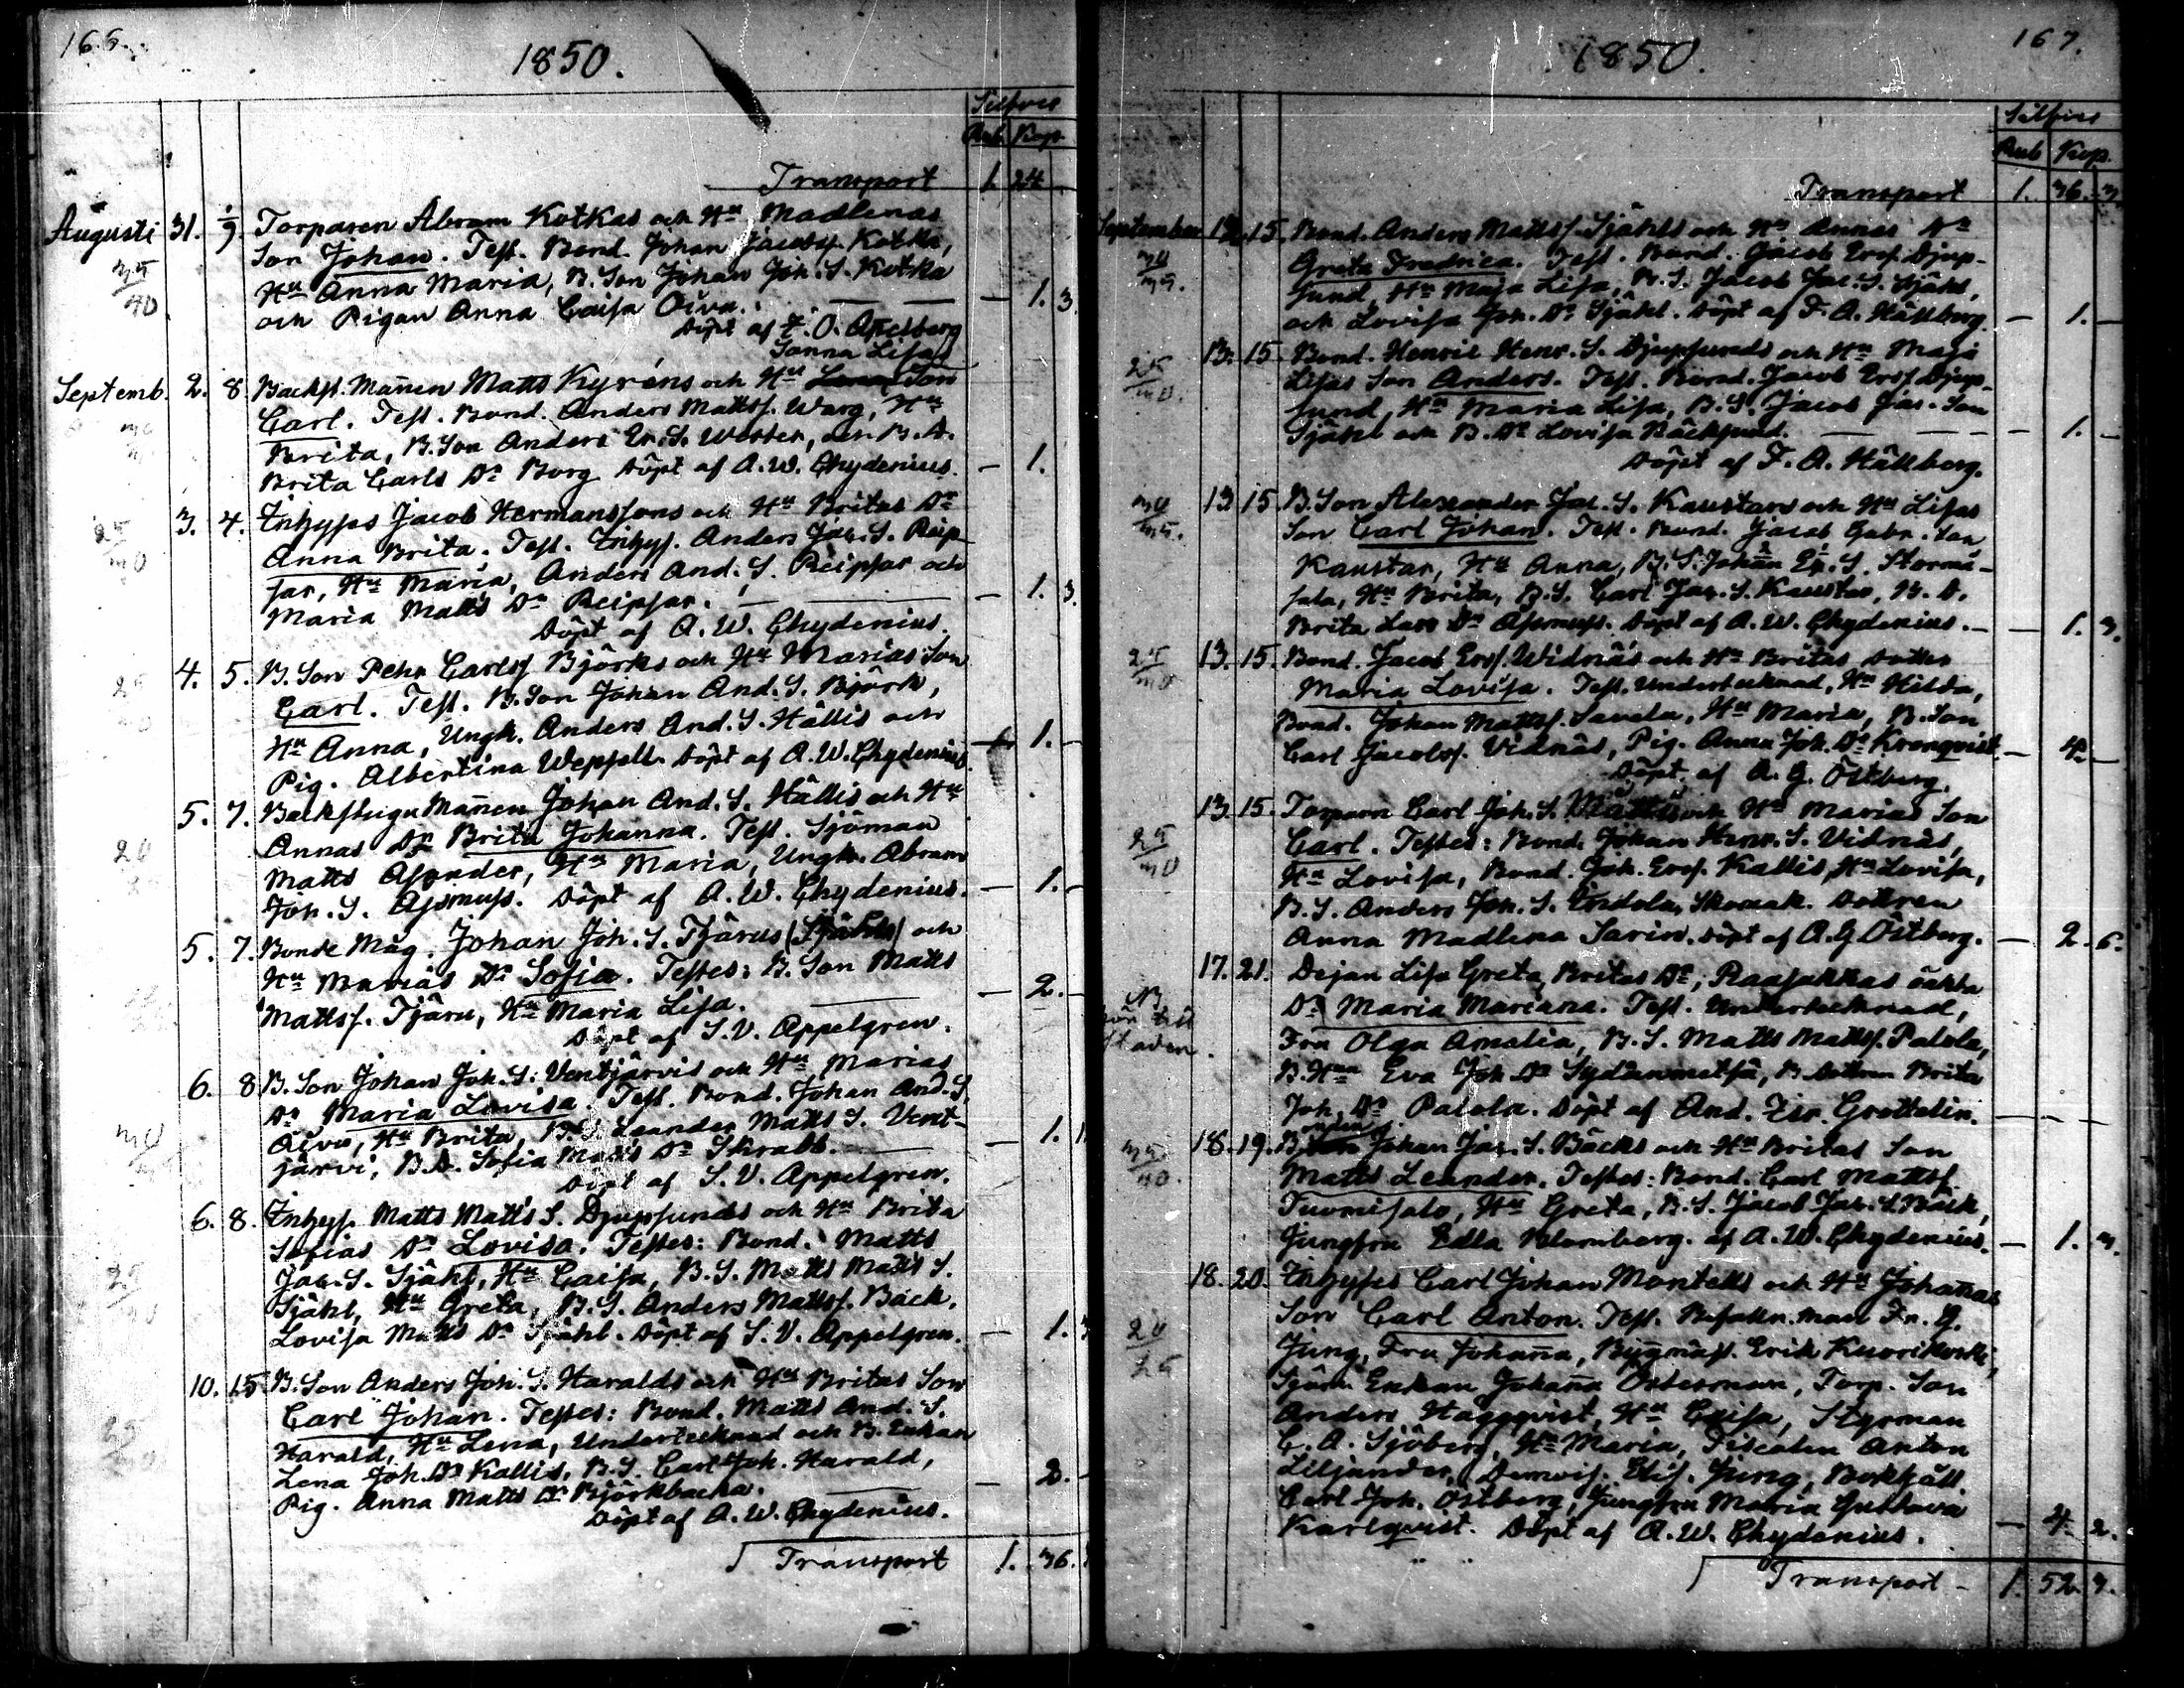 166.
1850.
Silfver
Rub. Kop.
Transport 1. 24
Augusti 31. 1/9. Torparen Abram Kotkas och Hu Madlenas
35 Son Johan. Test. Bond. Johan Jacobss. Kotka,
40 Hu Anna Maria, B. Son Johan Joh. S. Kotka
och Pigan Anna Caisa Oiva. — — — 1. 3
Döpt af F. O. Appelberg
Sanna Lisas
Septemb. 2. 8 Backst. Mannen Matts Kyréns och Hu Lenas Son
Carl. Test. Bond. Anders Mattss. Warg, Hu
Brita, B. Son Anders Er. S. Wester, och B. D.
Brita Carls Dr Borg Döpt af A. W. Chydenius. — 1.
3. 4. Inhyses Jacob Hermanssons och Hu Britas Dr
25 Anna Brita. Test. Inhys. Anders Jac. S. Reip-
sar, Hu Maria, Anders And. S. Reipsar och
Maria Matts Dr Reipsar. — — — 1. 3.
Döpt af A. W. Chydenius.
4. 5. B. Son Pehr Carlss Björks och Hu Marias Son
25 Carl. Test. B. Son Johan And. S. Björk,
Hu Anna, Ungk. Anders And. S. Hällis och
Pig. Albertina Wepsäll. Döpt af A. W. Chydenius. 1. —
5. 7. Backstugu Mannen Johan And. S. Hällis och Hu
Annas Dr Brita Johanna. Test. Sjöman
20 Matts Asender, Hu Maria, Ungk. Abram
Joh. S. Asmuss. Döpt af A. W. Chydenius. — 1. —
5. 7. Bonde Måg. Johan Joh. S. Tjärus (Sjähls) och
Hu Marias Dr Sofia. Testes: B. Son Matts
Mattss. Tjäru, Hu Maria Lisa. — — 2. —
Döpt af S. V. Appelgren.
6. 8 B. Son Johan Joh. S. Ventjärvis och Hu Marias
Dr Maria Lovisa. Test. Bond. Johan And. S.
30 Oivu, Hu Brita, B. S. Leander Matts S. Vent-
järvi, B. D. Sofia Matts Dr Skrabb. — — 1.
Döpt af S. V. Appelgren.
6. 8. Inhyss. Matts Matts S. Djupsunds och Hu Brita
Sofias Dr Lovisa. Testes: Bond. Matts
25 Jac. S. Sjähl, Hu Caisa, B. S. Matts Matts S.
Sjähl, Hu Greta, B. S. Anders Mattss. Bäck,
Lovisa Matts Dr Sjähl. Döpt af S. V. Appelgren. — 1. 3
10. 15 B. Son Anders Joh. S. Haralds och Hu Britas Son
Carl Johan. Testes: Bond. Matts And. S.
25 Harald, Hu Lena, Undertecknad och B. Enkan
Lena Joh. Dr Kallis, B. S. Carl Joh. Harald,
Pig. Anna Matts Dr Björkbacka. — — 2. —
Döpt af A. W. Chydenius.
Transport 1. 36.
167.
1850.
Silfver
Rub Kop.
Transport 1. 36. 3.
September 12. 15. Bond. Anders Mattss. Sjähls och Hu Annas Dr
30 Greta Fredrica. Test. Bond. Jacob Erss. Djup-
35. sund, Hu Maja Lisa, B. S. Jacob Jac. S. Sjähl,
och Lovisa Joh. Dr Sjähl. Döpt af F. A. Hällberg. — 1. —
13. 15 Bond. Henric Henr. S. Djupsunds och Hu Maja
25 Lisas Son Anders. Test. Bond. Jacob Erss. Djup-
30. sund, Hu Maria Lisa, B. S. Jacob Jac. Son
Sjähl och B. Dr Lovisa Bäcksund. — — — 1. —
Döpt af F. A. Hällberg.
13. 15. B. Son Alexander Jac. S. Kaustars och Hu Lisas
30 Son Carl Johan. Test. Bond. Jacob Gabr. Son
35. Kaustar, Hu Anna, B. S. Johan Er. S. Storma-
sala, Hu Brita, B. S. Carl Jac. S. Kaustar, B. D.
Brita Lars Dr Asmuss. Döpt af A. W. Chydenius. — — 1. 3.
25 13. 15. Bond. Jacob Erss. Widnäs och Hu Britas dotter
30 Maria Lovisa. Test. Undertecknad, Hu Hilda,
Bond. Johan Mattss. Savela, Hu Maria, B. Son
Carl Jacobss. Vidnäs, Pig. Anna Joh. Dr Kronqvist. — 4. —
Döpt af A. G. Östberg.
13. 15. Torparn Carl Joh. S. och Hu Marias Son
25 Carl. Testes: Bond. Johan Henr. S. Vidnäs,
30 Hu Lovisa, Bond. Joh. Erss. Kallis, Hu Lovisa,
B. S. Anders Joh. S. Indola, Skomak. Dottren
Anna Madlena Sarin. Döpt af A. G Östberg. — 2. 6.
17. 21. Pejan Lisa Greta Britas Dr, Raasakkas oäkta
Dr Maria Mariana. Test. Undertecknad,
staden. Fru Olga Amalia, B. S. Matts Mattss. Palola,
B. Hun Eva Joh. Dr Sydänmetsä, B. Dottren Brita
Joh. Dr Palola. Döpt af And. Isr. Grottelin. — — —
18. 19. Bonden Johan Jac. S. Bäcks och Hu Britas Son
35 Matts Leander. Testes: Bond. Carl Mattss.
40. Tuomisalo, Hu Greta, B. S. Jacob Jac. S. Bäck,
Jungfru Edla Blomberg. af A. W. Chydenius. — 1. 3.
18. 20. Inhyses Carl Johan Montells och Hu Johannas
20 Son Carl Anton. Test. Befalln. man Fr. G.
25 Jung, Fru Johanna, Bygmäst. Erik Kuorikoski,
Sjöm. Enkan Johanna Österman, Torp. Son
Anders Häggqvist, Hu Caisa, Styrman
C. A. Sjöberg, Hu Maria, Fiscalen Anton
Liljander, Demois. Elis. Jung, Bokhåll.
Carl Joh. Östberg, Jungfru Maria Gustava
Karlqvist. Döpt af A. W. Chydenius. — 4. 2.
Transport — 1. 52. 3.